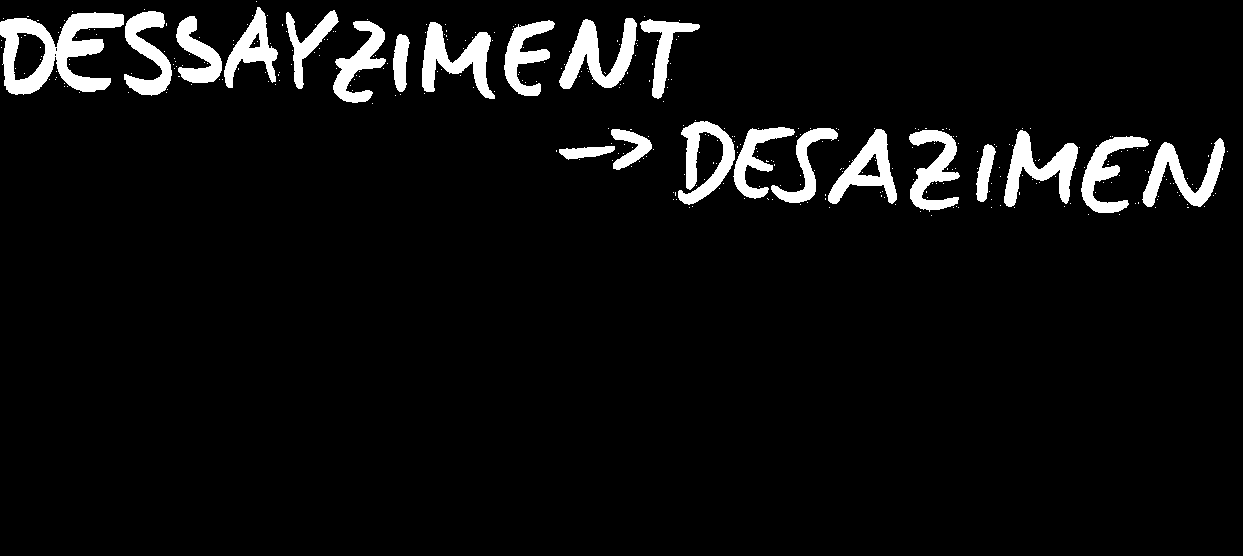 DESSAYZIMENT
→ DESAZIMEN